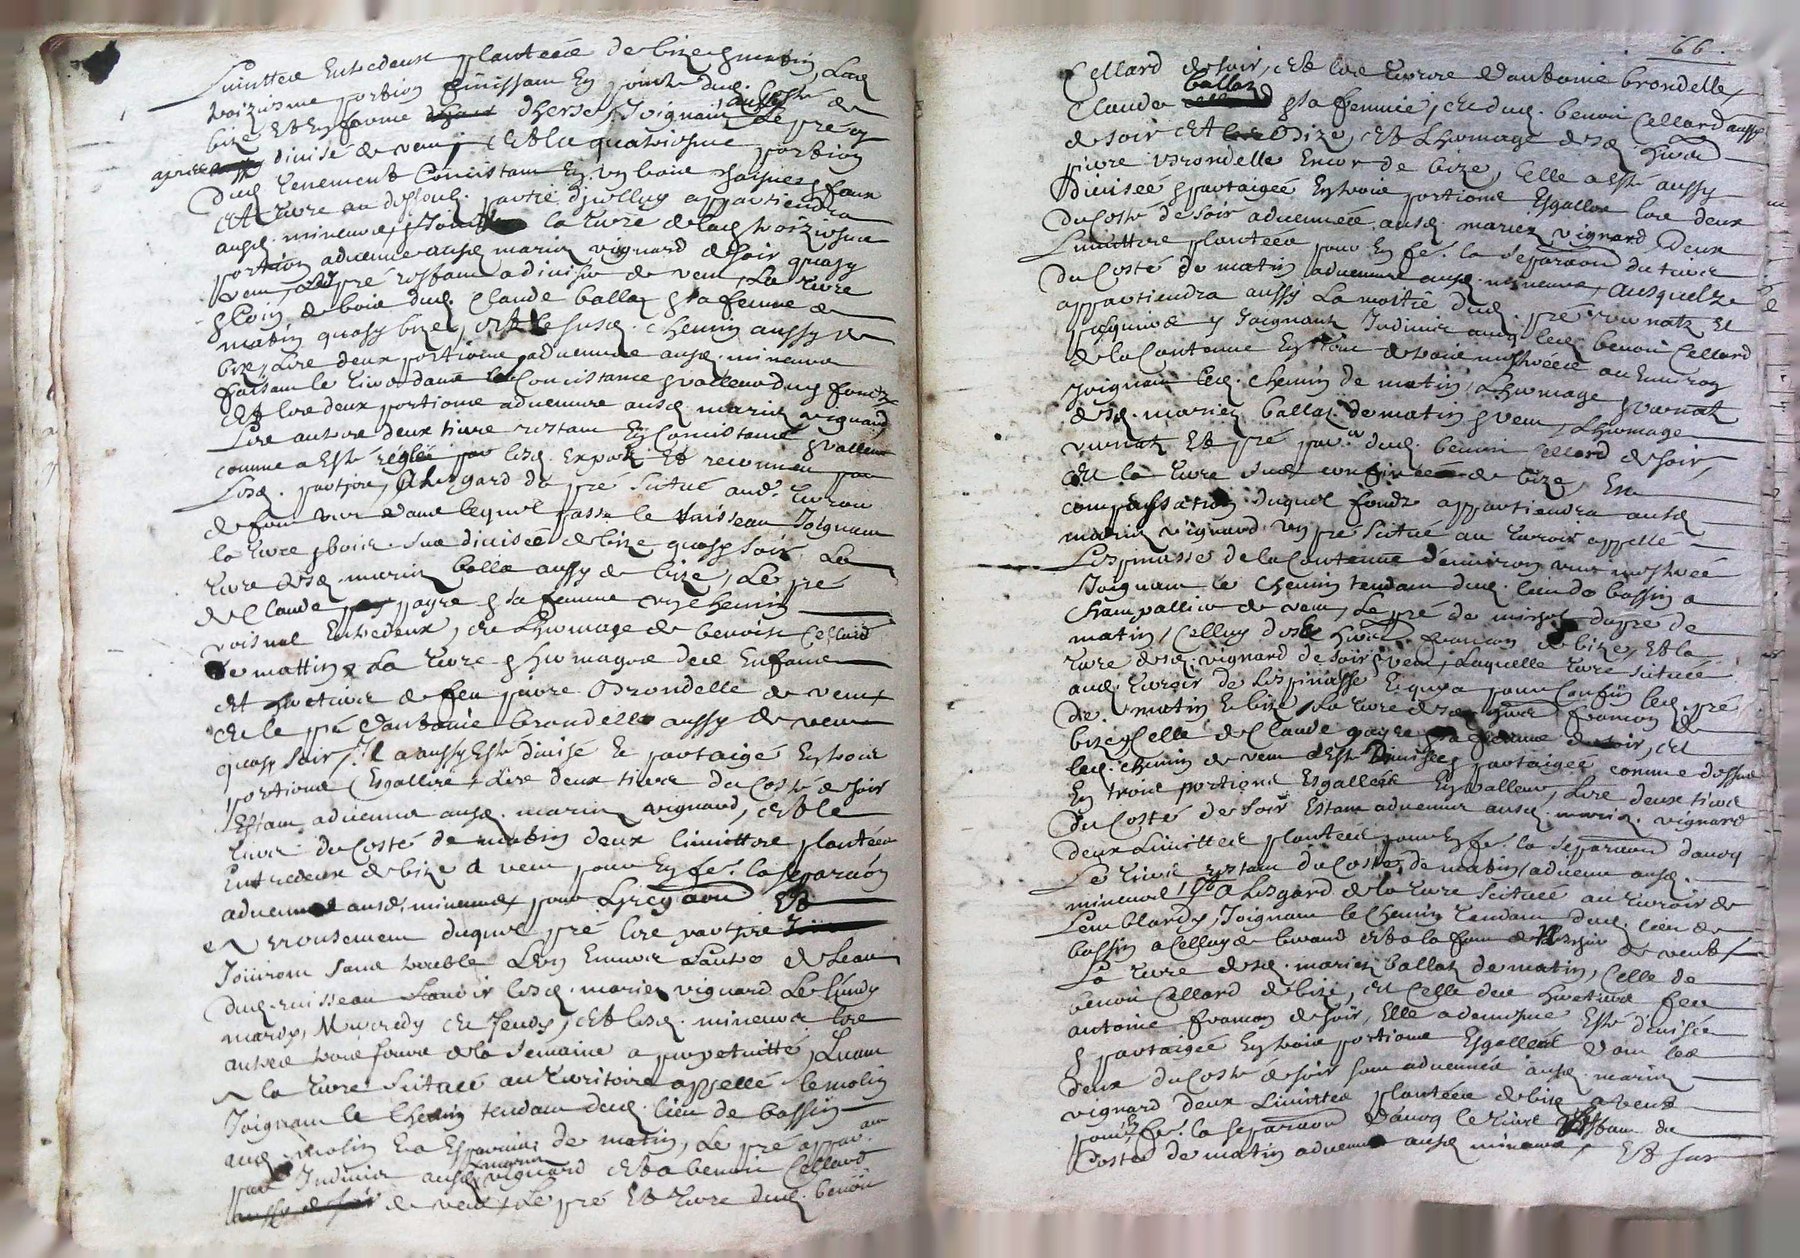 Limittes entredeux plantées de bize & matin, Lad
troiziesme portion finissant En pointe dud. Costé de
bize Et En forme d'herse, Joignant aussy Le pré cy
apres divisé de vent, Et la quatriesme portion
Dud tenement Concistant En un boix
Et terre au dessoub. partie d'jcelluy appartiendra
ausd. mineurs, la terre de lad troiziesme
portion advenue ausd mariez vignard de soir quasy
vent, Le pré restant a divisé de vent, La terre
& Coin de boix dud. Claude balley & sa femme de
matin quasy bize, Et le susd. chemin aussy de
bize, Les deux portions advenues ausd. mineurs
faisant le tier dans la Concistance & valleur dud fondz
Et les deux portions advenues ausd. mariez vignard
Les autres deux tiers restant En Concistance & valleur
comme a Esté reglé par lesd. Expertz Et reconneu par
Lesd. parties, A l'Esgard du pré scitué aud. terroir
de four vieux dans lequel passe le ruisseau Joignant
la terre & boix sus divisée de bize quasy soir La
terre desd. mariez balla aussy de bize, Le pré
de Claude payre & sa femme un chemin
voisinal Entredeux, et l'hermage de benoist Cellard
de mattin, La terre & hermage des Enfans
Et heretiers de feu pierre Brondelle de vent
Et le pré d'anthoine brondelle aussy de vent
quasy soir, Il a aussy Esté divisé & partaigé En trois
portions Esgalles, Les deux tiers du Costé de soir
Estant advenus ausd. mariez vignard, Et le
tiers du Costé de matin deux limittes plantées
Entredeux de bize a vent pour En fe. la separaon
advenue ausd. mineurs pour
arrousement duquel pré les parties
Jouiront sans trouble L'un Envers L'autre de l'eau
Dud. ruisseau scavoir lesd. mariez vignard Le lundy
mardy, Mercredy et Jeudy, Et lesd. mineurs les
autres trois jours de la semaine a perpetuitté, Quant
a la terre scituée au territoire appellé le molin
Joignant le chemin tendant dud. lieu de bassin
aud. molin de matin, Le pré appar.ant
par Indivis ausd. mariez vignard Et a benoist Cellard
aussy de soir de vent, Le pré Et terre dud. benoist
66.
Cellard de soir, Et les terres d'anthoine brondelle,
Claude ballay & sa femme, et dud. benoist Cellard aussy
de soir Et Bize, Et L'hermage desd. hoirs
pierre Brondelle Encor de bize, Elle a Esté aussy
Divisée & partaigée En trois portions Esgalles les deux
du Costé de soir advenues ausd. mariez vignard Deux
Limittes plantées pour En fe. la separaon du tiers
du Costé de matin advenu ausd. mineurs, Ausquelz
appartiendra aussy La moitié dud. pré vernatz Et
pasquiers y Joignant Indivis avec led. benoist Cellard
de la Contenue En tout de trois mestrées ou Environ
Joignant led. chemin de matin, L'hermage & vernatz
desd. mariez balla de matin & vent, L'hermage
vernatz Et pré par.er dud. benoist Cellard de soir,
Et la terre sus confinée de bize, En
compensation duquel fondz appartiendra ausd
mariez vignard un pré scitué au terroir appellé
Lespinasse de la Contenue d'environ une mestrée
Joignant le chemin tendant dud. lieu de bassin a
Champallier de vent, Le pré de de
matin, Celluy des hoirs francon de bize, Et la
terre desd. vignard de soir & vent, Laquelle terre scituée
aud. terroir de Lespinasse Et qui a pour Confin led. pré
de matin & bize, La terre des hoirs francon de
bize, Celle de Claude payre & sa femme de soir, et
led. chemin de vent Est Divisée & partaigée comme dessus
En trois portions Esgalles En valleur, Les deux tiers
du Costé de soir Estant advenus ausd. mariez vignard
deux Limittes plantées pour En fe. la separaon d'avec
Le tiers restant du Costé de matin, advenu ausd.
mineurs, Et a L'esgard de la terre scituée au terroir de
Lemblardy, Joignant le chemin tendant dud. lieu de
bassin a Celluy de de vent,
La terre desd. mariez ballay de matin, Celle de
benoist Cellard de bize, Et Celle des heretiers feu
antoine francon de soir, Elle a de mesme Esté divisée
& partaigée En trois portions Esgalles dont les
deux du Costé de soir sont advenues ausd. mariez
vignard deux Limittes plantées de bize a vent
pour En fe. la separaon d'avec le tiers restant du
Costé de matin advenu ausd mineurs, Et sur